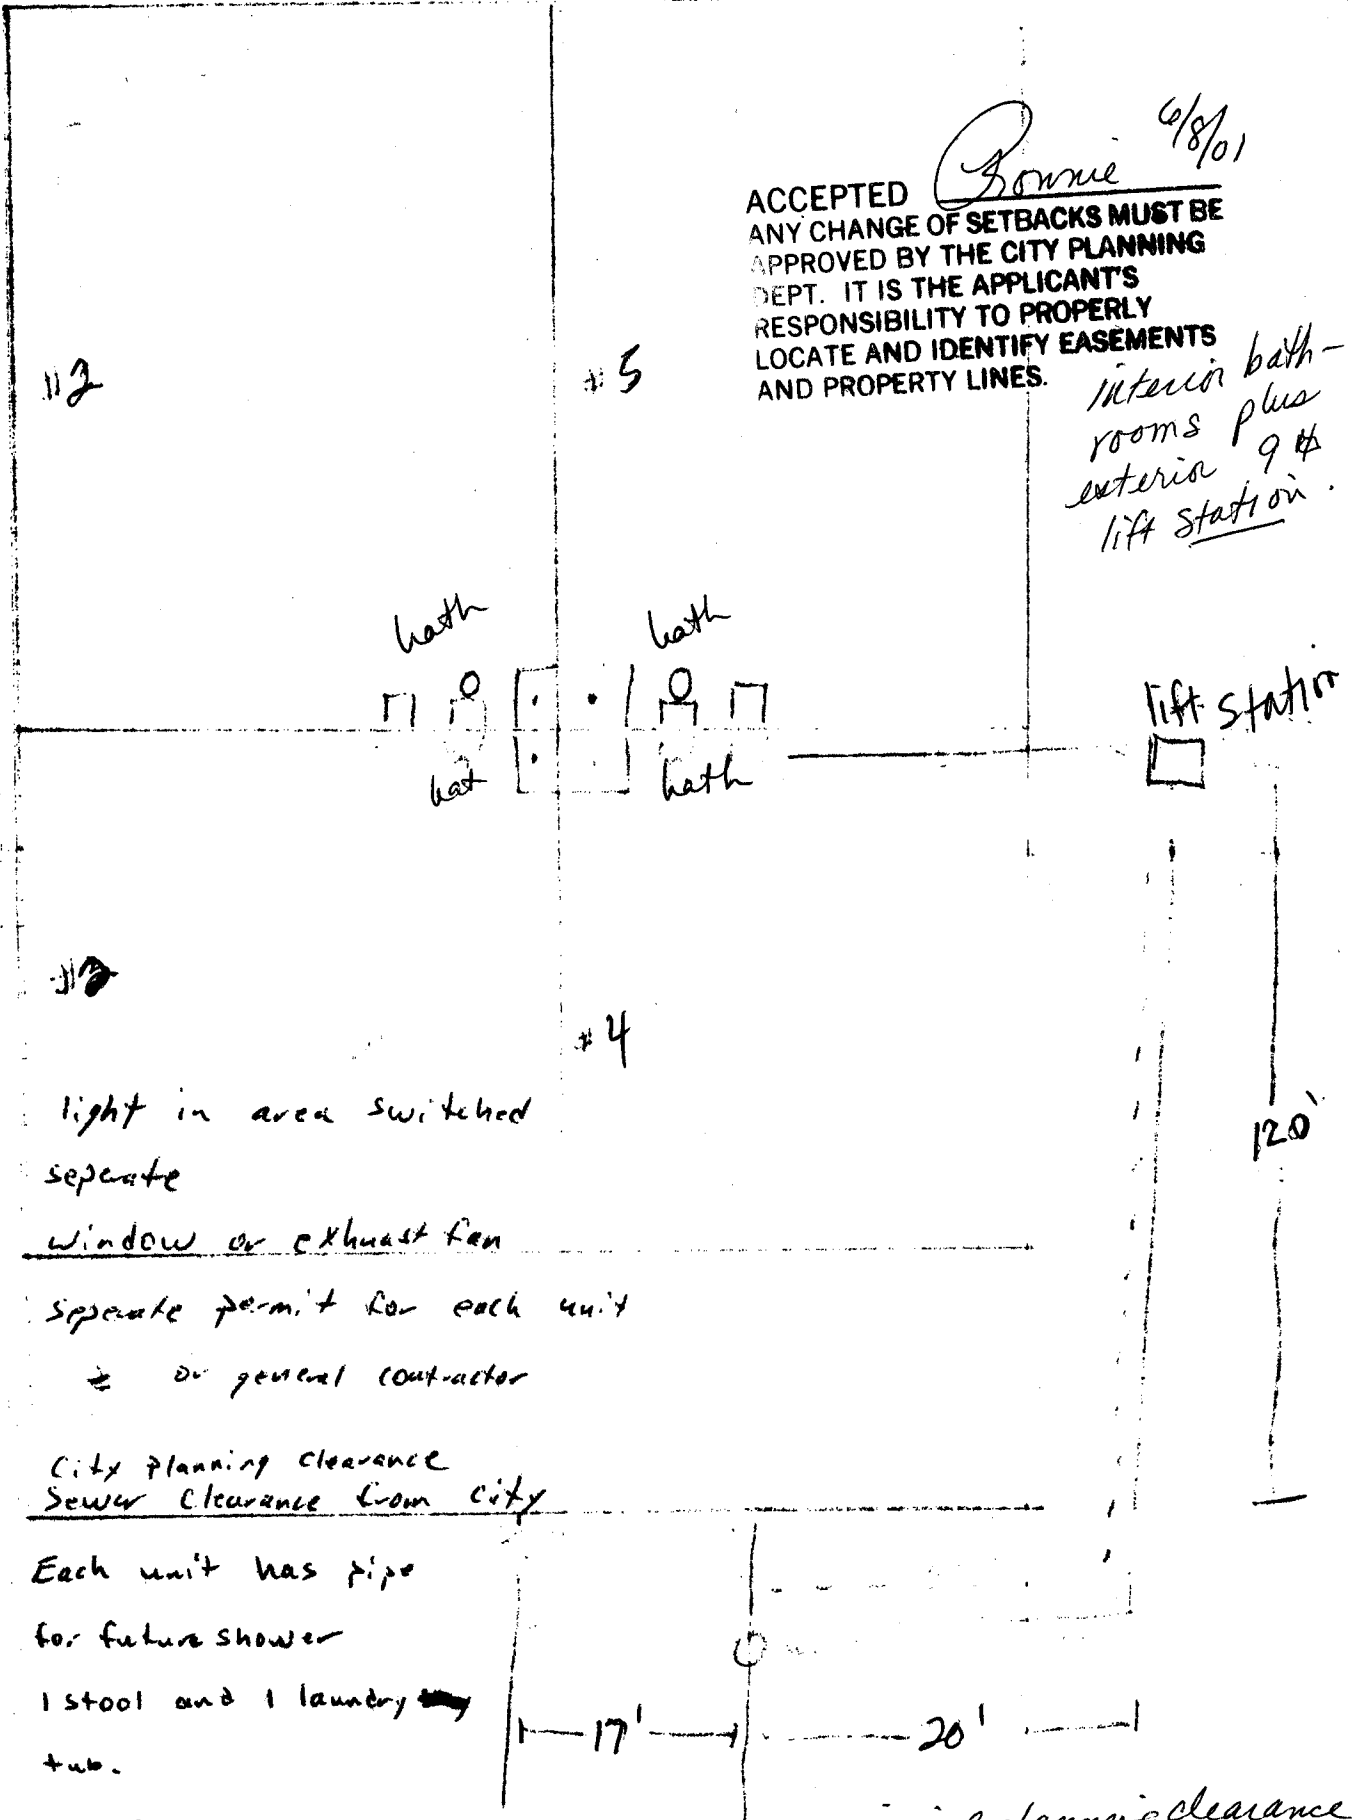 6/8/01
ACCEPTED Ronnie
ANY CHANGE OF SETBACKS MUST BE
APPROVED BY THE CITY PLANNING
DEPT. IT IS THE APPLICANT'S
RESPONSIBILITY TO PROPERLY
LOCATE AND IDENTIFY EASEMENTS
AND PROPERTY LINES.
interior bath-
rooms plus
exterior
lift station.
#2
#5
bath
bath
lift station
bat
bath
#4
light in area switched
seperate
window or exhuast fan
120'
seperate permit for each unit
or general contractor
City planning clearance
Sewer Clearance from city
Each unit has pipe
for future shower
1 stool and 1 laundry
tub.
17'
20'
clearance